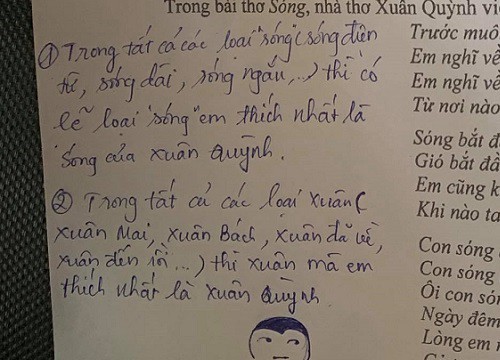 Trong bài thơ Sóng, nhà thơ Xuân Quỳnh vi
① Trong tất cả các loại "sóng" (sóng điện
từ, sóng dài, sóng ngắn,...) thì có
lẽ loại "sóng" em thích nhất là
Sóng của Xuân Quỳnh.
② Trong tất cả các loại xuân (
Xuân Mai, Xuân Bách, xuân đã về,
xuân đến rồi...) thì xuân mà em
thích nhất là Xuân Quỳnh
Trước muô
Em nghĩ về
Em nghĩ về
Từ nơi nào
Sóng bắt đ
Gió bắt đầ
Em cũng k
Khi nào ta
Con sóng
Con sóng
Ôi con só
Ngày đêm
Lòng em